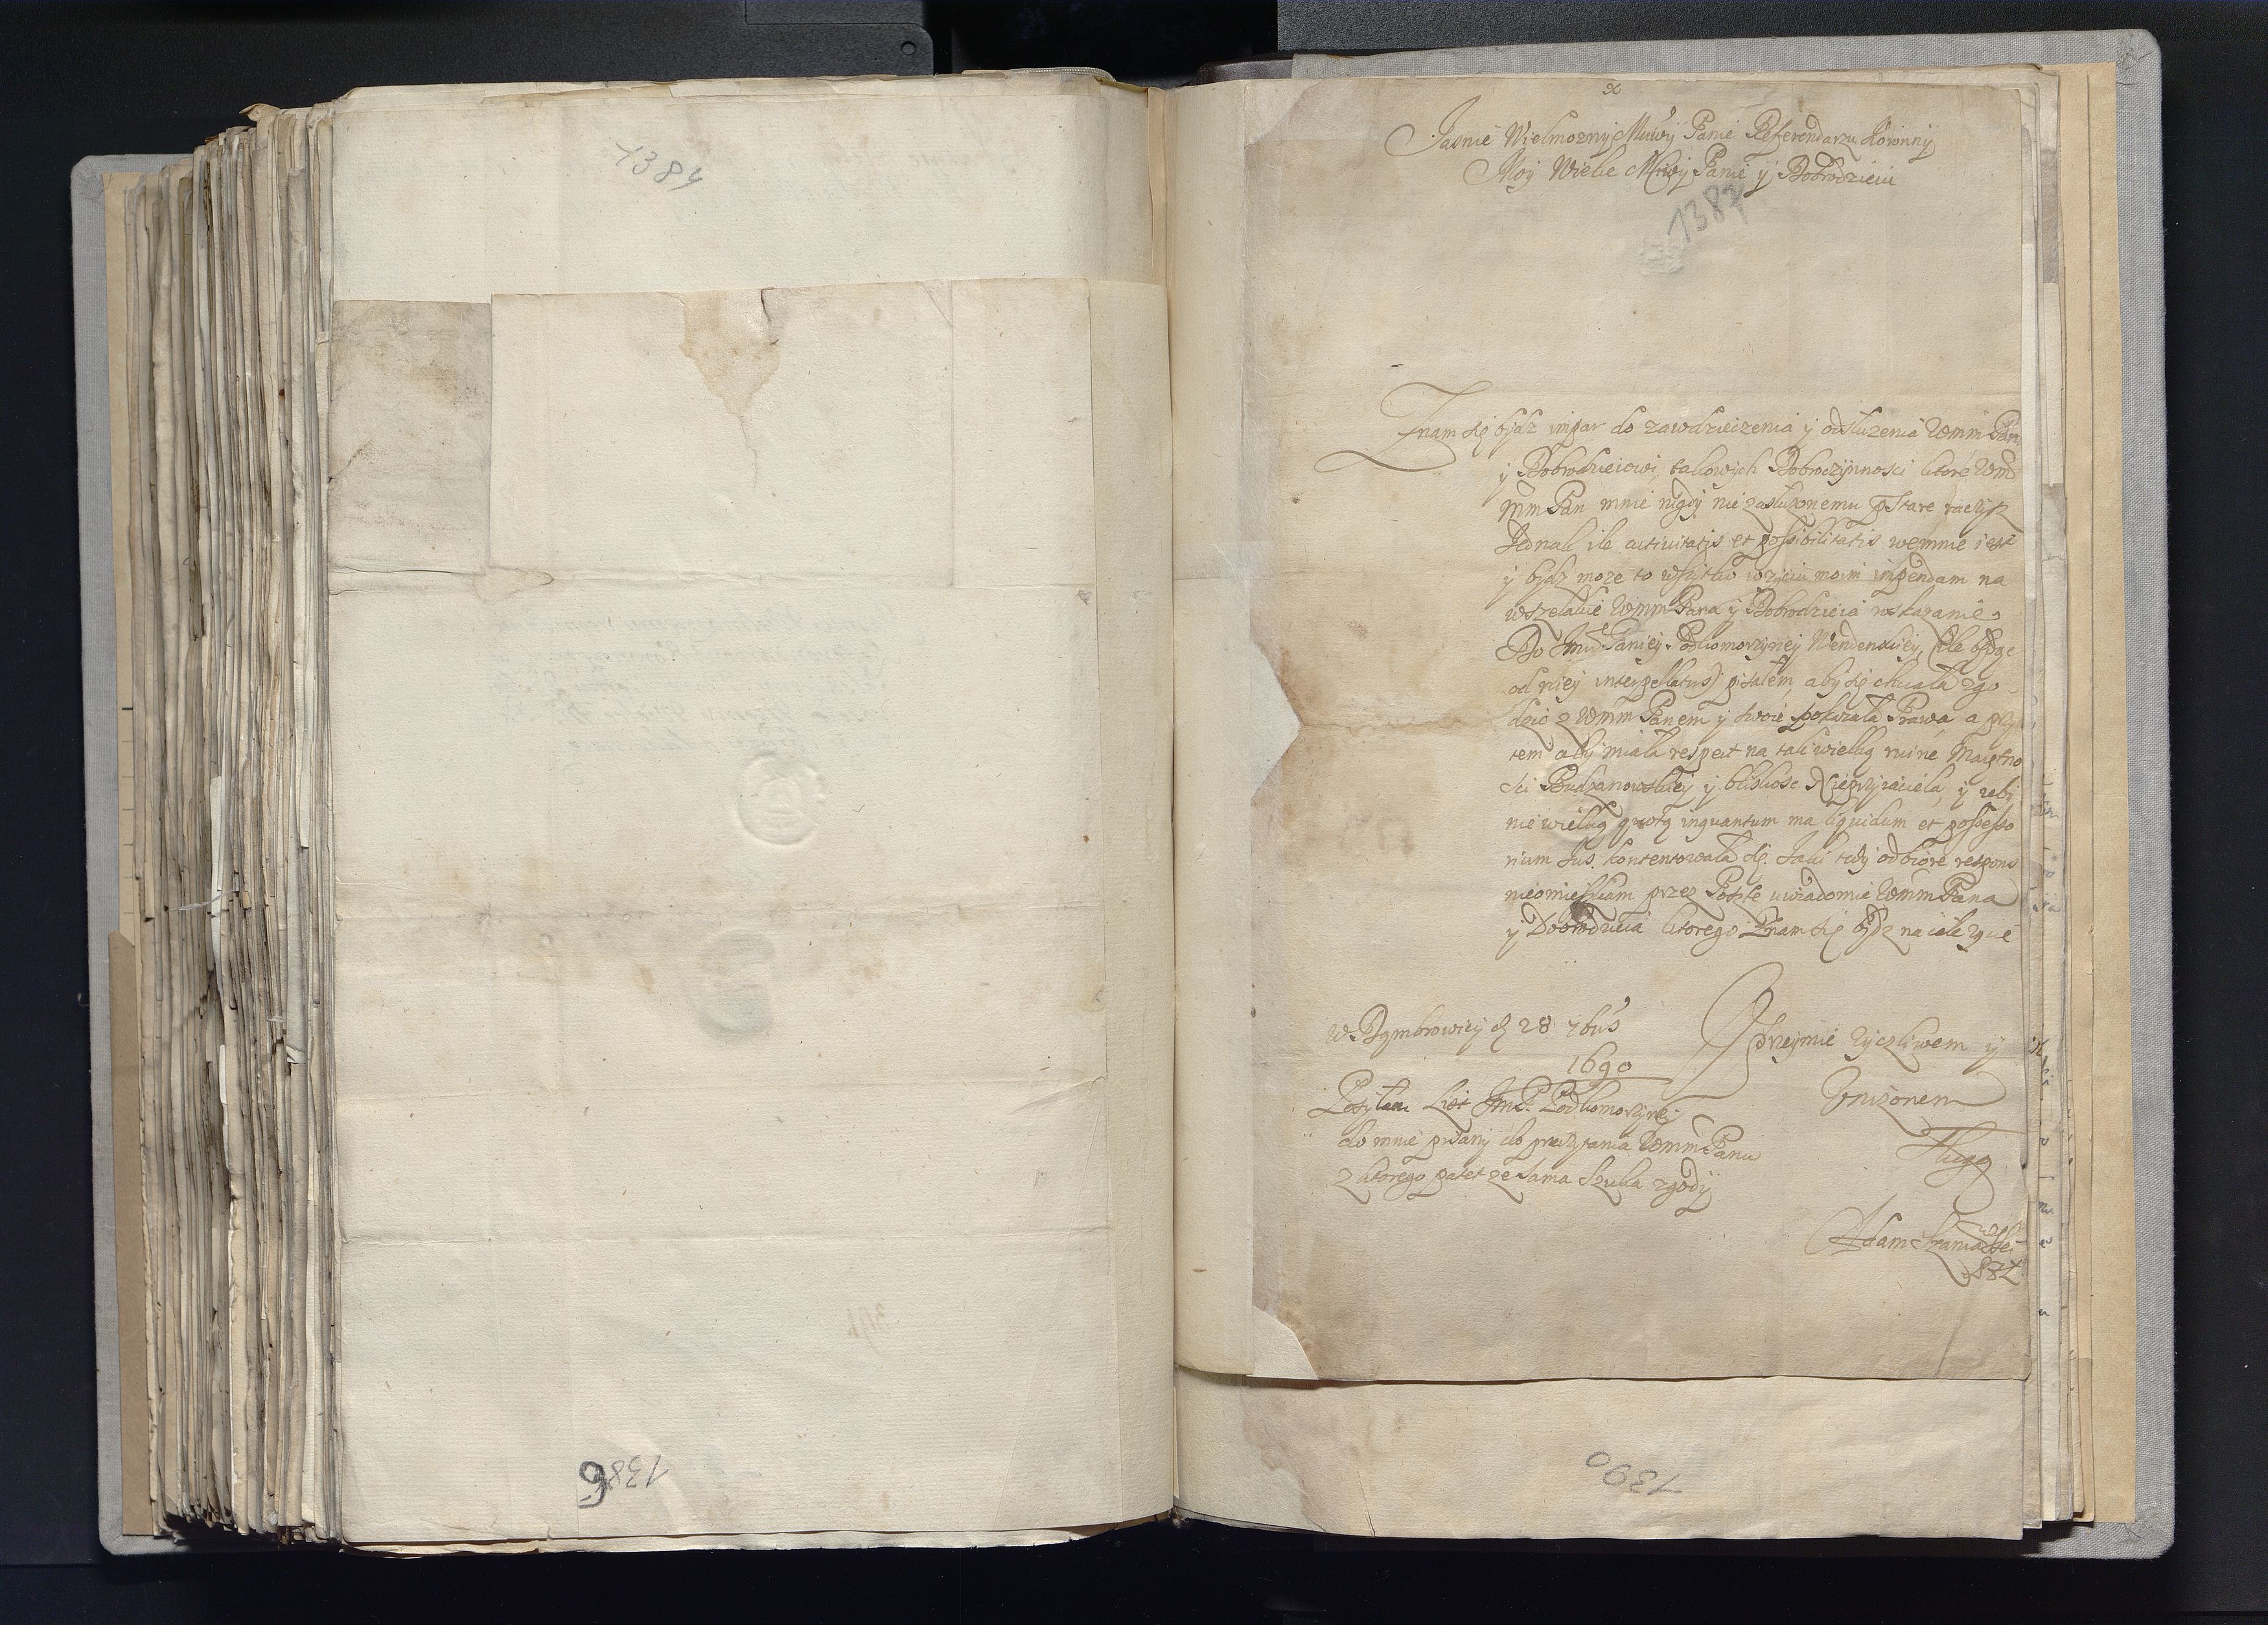 1384
1386
x
Jasnie Wielmozny Mciwÿ Panie Referendarzu Koronnÿ
Moÿ Wielce Mciwÿ Panie ÿ Dobrodzieiu
1387
Znam się bÿdz impar do zawdzieczenia ÿ odsłuzenia WmmPanu
ÿ Dobrodzieiowi, takowÿch Dobroczÿnnosci ktore Wm
mm Pan mnie nigdÿ nie zasłuzonemu pstare raczÿsz
Jednak ile activitatis et possibilitatis wemnie iest
ÿ bÿdz moze to wszÿtko wzÿciu moim impendam na
wszelakie WmmPana ÿ Dobrodzieia roskazanie.
Do Jmci Paniey Podkomorzÿney Wendenskiey, (ile będąc
od niey interpellatus) pisałem, aby się chciała zgo
dzic z Wmm Panem ÿ swoie pokazała Prawa, a przÿ
tem abÿ miała respect na tak wielką ruinę Maiętno
sci Budzanowskieÿ ÿ bliskosc Nieprzÿiaciela, ÿ zebÿ
nie wielką quotą inquantum ma liquidum et possesso
rium Jus, kontentowała się. Jaki tedy odbiorę respons
nieomieszkam przez Posztę uwiadomic WmmPana
ÿ Dobrodzieia ktorego Znam się bÿdz na cale zÿcie
W Dąmbrowicÿ d 28 7bris
1690
Uprzeÿmie zÿczliwem ÿ
Unizonem
Sługą
Posÿłam List JmP. Podkomorzÿneÿ
do mnie pisanÿ do przeczÿtania WmmPanu
z ktorego patet ze sama szuka zgodÿ
Adam
1390